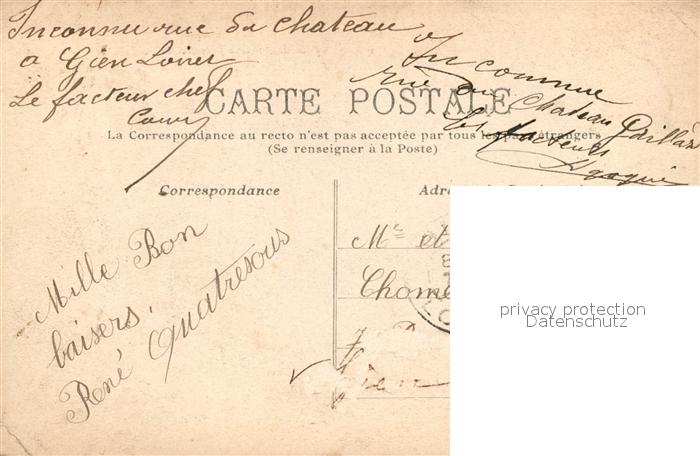 Inconnu rue du chateau
a Gien Loiret
Le facteur chef
Inconnue
rue du Chateau Gaillard
les facteurs
CARTE POSTALE
La Correspondance au recto n'est pas acceptée par tous les pays étrangers
(Se renseigner à la Poste)
Correspondance
Mille Bon
baisers,
René Quatresous
Mr et
Chome
Gien
privacy protection
Datenschutz